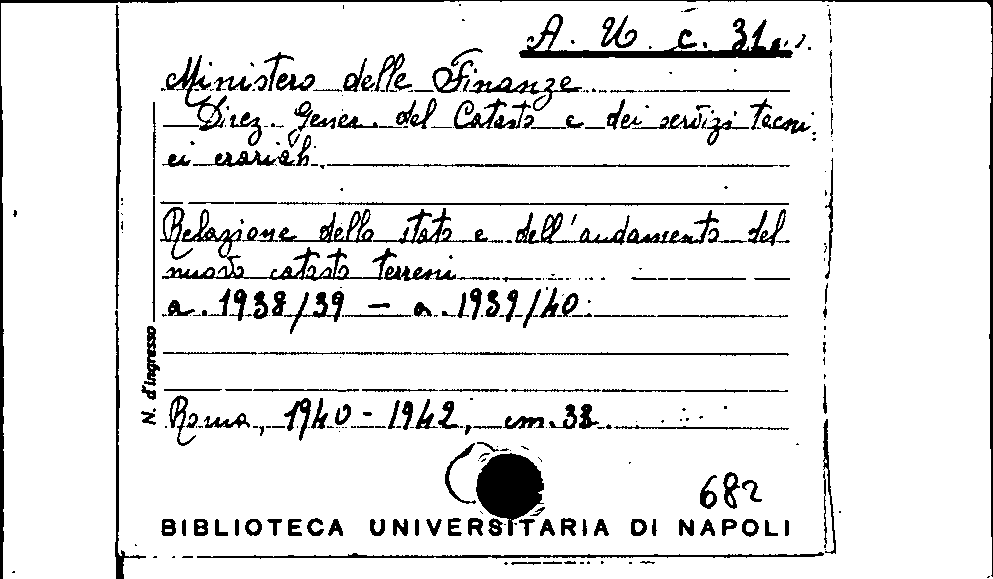 A. U. c. 31
Ministero delle Finanze
Direz. Gener. del Catasto e dei servizi tecni-
ci erariali.
Relazione dello stato e dell'andamento del
nuovo catasto terreni
a. 1938/39 - a. 1939/40.
N. d'ingresso
Roma, 1940-1942, cm. 33.
682
BIBLIOTECA UNIVERSITARIA DI NAPOLI